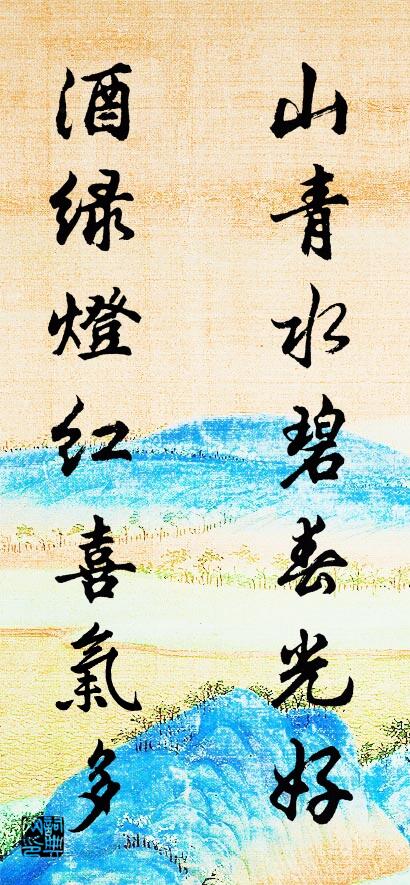 山青水碧春光好
酒绿燈红喜氣多